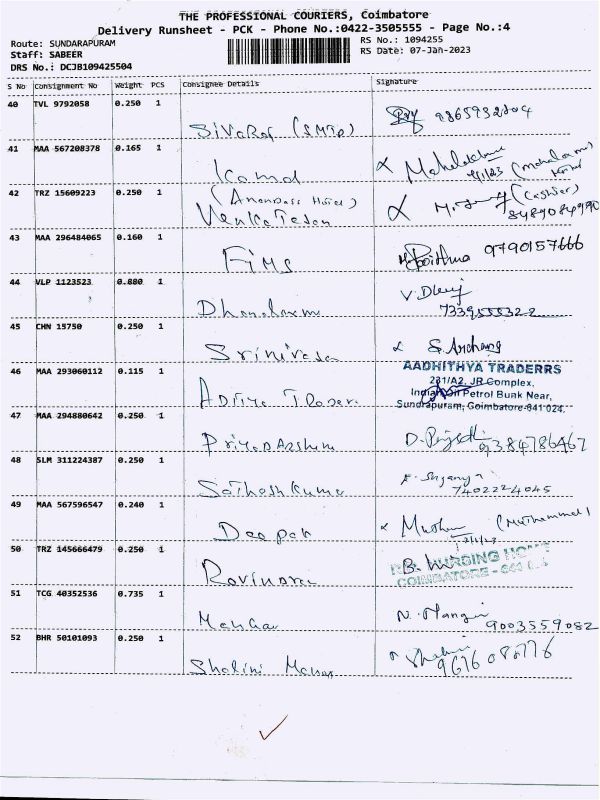 THE PROFESSIONAL COURIERS, Coimbatore
Delivery Runsheet - PCK - Phone No.:0422-3505555 - Page No.:4
Route: SUNDARAPURAM
Staff: SABEER
DRS No.: DCJB109425504
RS No.: 1094255
RS Date: 07-Jan-2023
S No Consignment No Weight PCS Consignee Details Signature
40 TVL 9792058 0.250 1
SivaRaj (SMTP)
41 MAA 567208378 0.165 1
Kamal
42 TRZ 15609223 0.250 1
(Anandass Hotel) (Cashier)
Venkatesan 8489084990
43 MAA 296484065 0.160 1
FIMS 9790157666
44 VLP 1123523 0.880 1
Dhanalaxmi V.
45 CHN 15750 0.250 1
Srinivasan
46 MAA 293060112 0.115 1
AADHITHYA TRADERRS
231/A2, JR Complex,
Indian Oil Petrol Bunk Near,
Sundrapuram, Coimbatore-641 024.
Aditya
47 MAA 294880642 0.250 1
PriyaDARshini 9384786467
48 SLM 311224387 0.250 1
Sathosh Kumar 7402224045
49 MAA 567596547 0.240 1
Deepak (Muthammal)
50 TRZ 145666479 0.250 1
NURSING HOME
COIMBATORE - 641
Ravindra
51 TCG 40352536 0.735 1
9003559082
52 BHR 50101093 0.250 1
Shalini